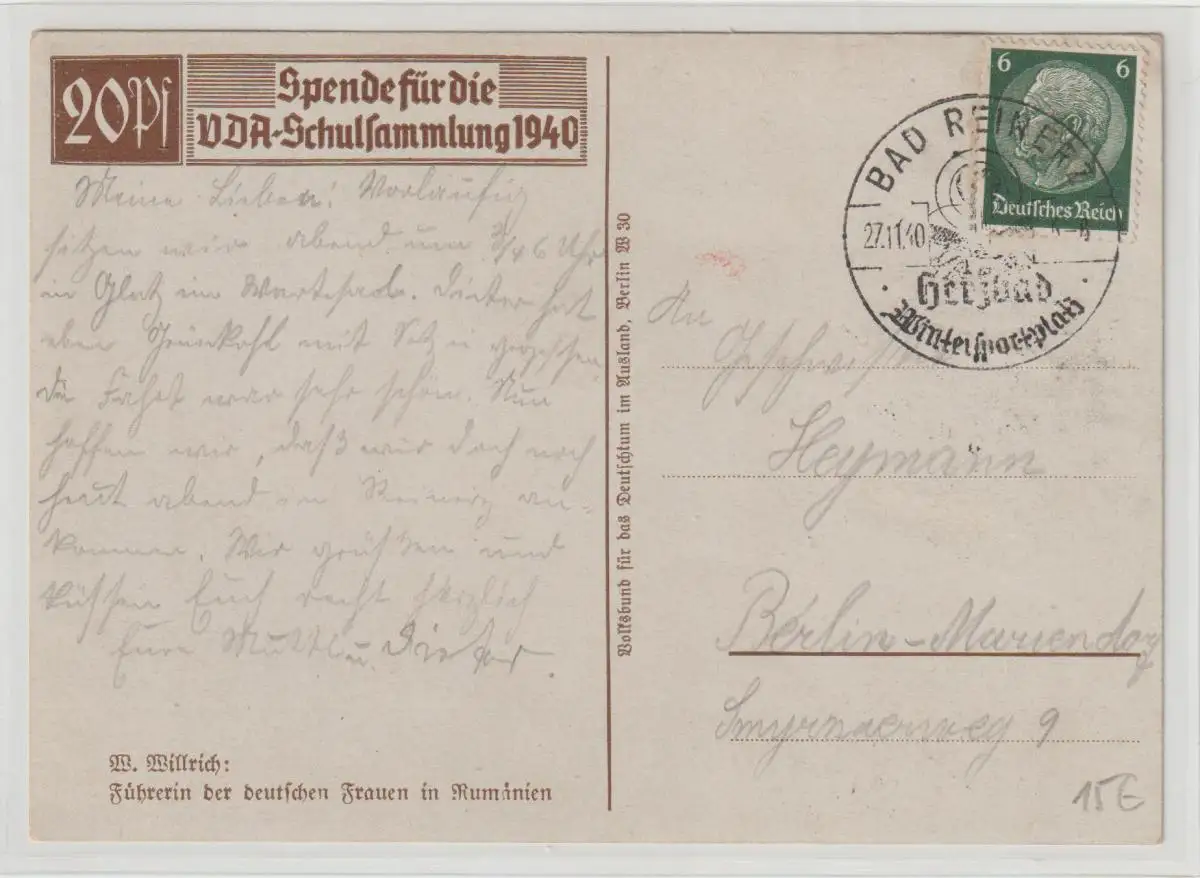 20Pf
Spende für die
VDA-Schulsammlung 1940
Meine Lieben! Vorläufig
sitzen wir abend um 3/4 6 Uhr
in Glatz im Wartesaal. Dieter hat
eben
die Fahrt war sehr schön. Nun
hoffen wir, daß wir doch noch
heut abend in Reinerz an-
kommen. Wir grüßen und
küssen Euch recht herzlich
Eure Mutti u. Dieter.
W. Willrich:
Führerin der deutschen Frauen in Rumänien
Volksbund für das Deutschtum im Ausland, Berlin W 30
6 6
Deutsches Reich
BAD REINERZ
27.11.40
Herzbad
Wintersportplatz
An
Geschwister
Heymann
Berlin-Mariendorf
Smyrnaerweg 9
15€